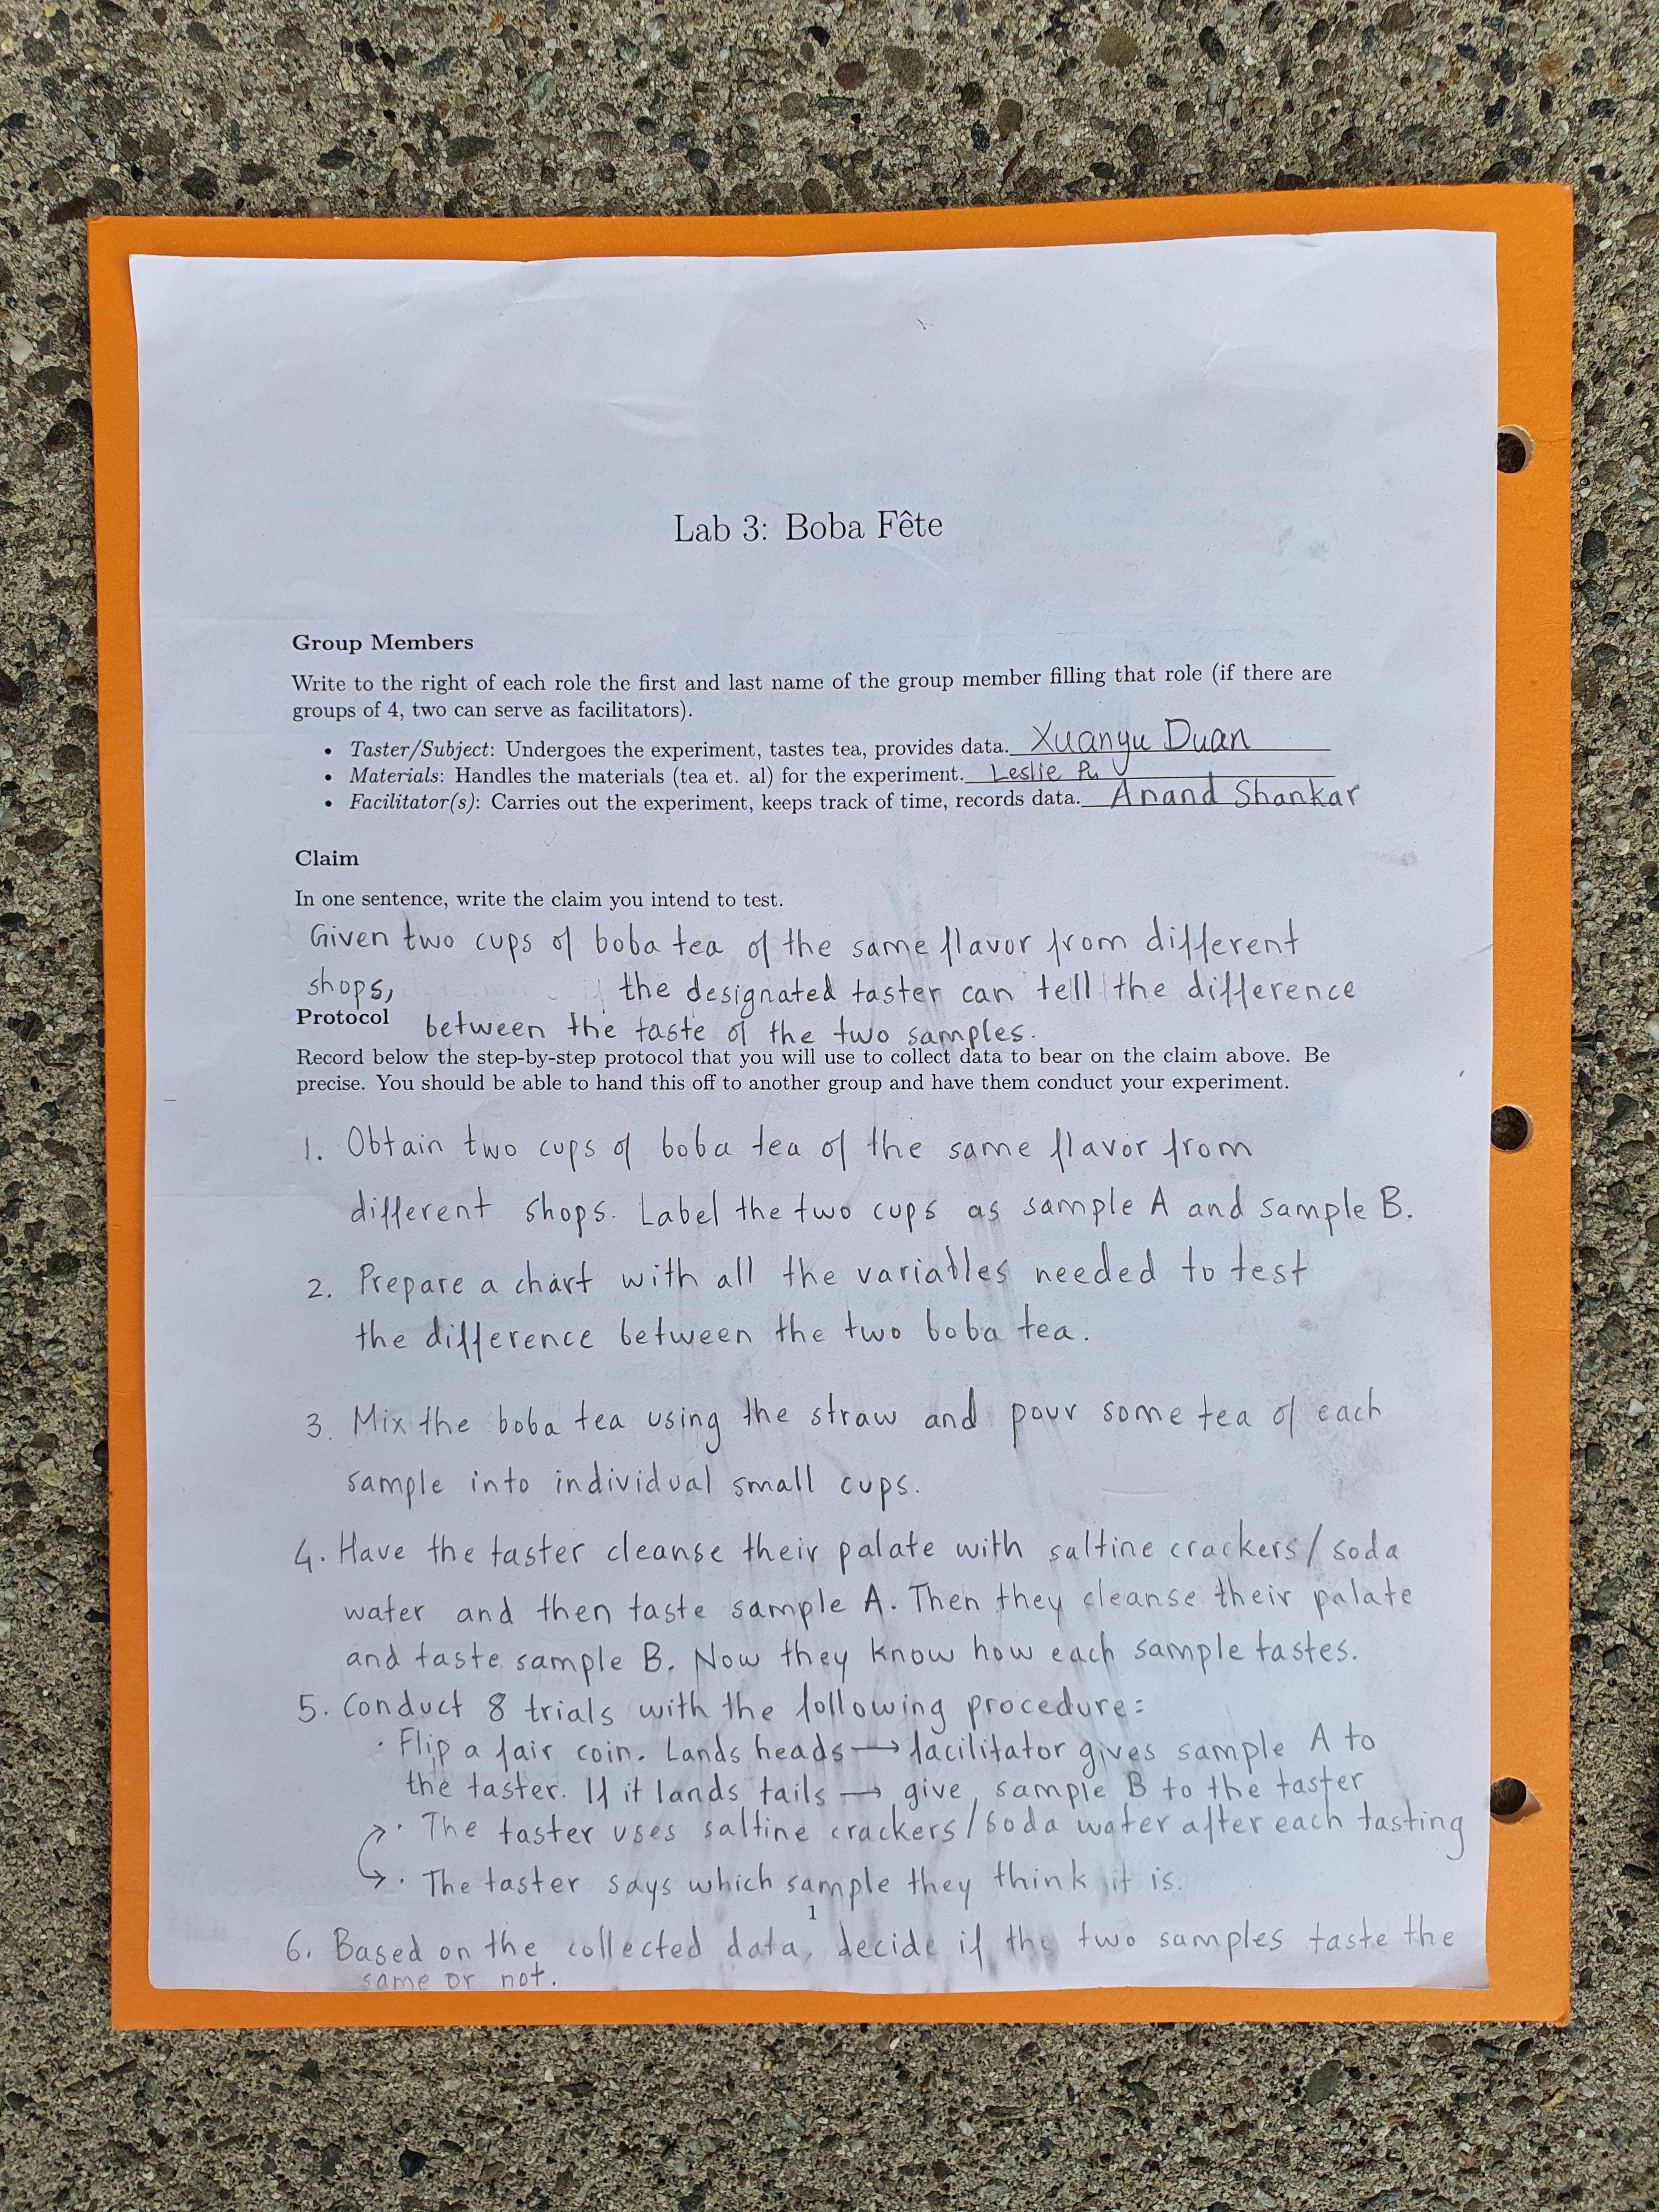 Lab 3: Boba Fête
Group Members
Write to the right of each role the first and last name of the group member filling that role (if there are
groups of 4, two can serve as facilitators).
• Taster/Subject: Undergoes the experiment, tastes tea, provides data. Xuanyu Duan
• Materials: Handles the materials (tea et. al) for the experiment. Leslie Pu
• Facilitator(s): Carries out the experiment, keeps track of time, records data. Anand Shankar
Claim
In one sentence, write the claim you intend to test.
Given two cups of boba tea of the same flavor from different
shops, the designated taster can tell the difference
between the taste of the two samples.
Protocol
Record below the step-by-step protocol that you will use to collect data to bear on the claim above. Be
precise. You should be able to hand this off to another group and have them conduct your experiment.
1. Obtain two cups of boba tea of the same flavor from
different shops. Label the two cups as sample A and sample B.
2. Prepare a chart with all the variables needed to test
the difference between the two boba tea.
3. Mix the boba tea using the straw and pour some tea of each
sample into individual small cups.
4. Have the taster cleanse their palate with saltine crackers/soda
water and then taste sample A. Then they cleanse their palate
and taste sample B. Now they know how each sample tastes.
5. Conduct 8 trials with the following procedure:
· Flip a fair coin. Lands heads → facilitator gives sample A to
the taster. If it lands tails → give sample B to the taster
· The taster uses saltine crackers/soda water after each tasting
· The taster says which sample they think it is.
1
6. Based on the collected data, decide if the two samples taste the
same or not.